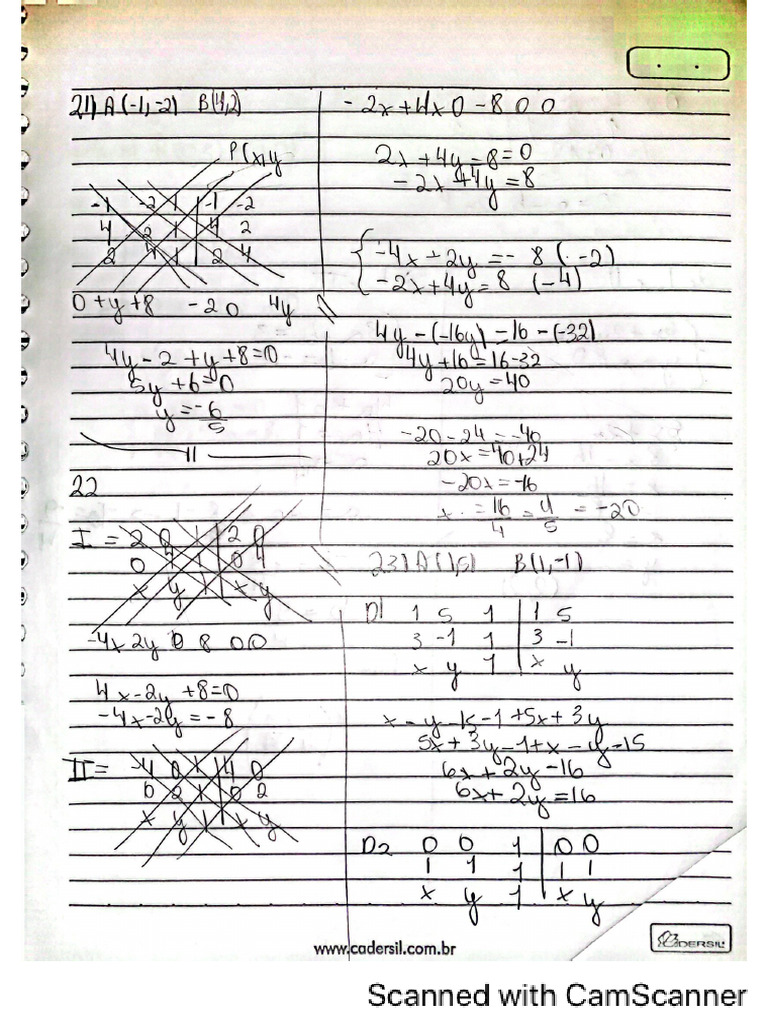 21) A(-1,-2) B(4,2)
P(x,y
-1 -2 1 | -1 -2
4 2 1 | 4 2
2 4 1 | 2 4
0 + y + 8 - 2 0 4y //
4y - 2 + y + 8 = 0
5y + 6 = 0
y = -6
5
11
22
I = 2 0 1 | 2 0
0 4 1 | 0 4
x y 1 | x y
-4x 2y 0 8 0 0
4x - 2y + 8 = 0
-4x - 2y = -8
II = -4 0 1 | 4 0
0 2 1 | 0 2
x y 1 | x y
-2x + 4x 0 - 8 0 0
2x + 4y - 8 = 0
-2x + 4y = 8
-4x + 2y = - 8 (. -2)
-2x + 4y = 8 (-4)
4y - (-16y) - 16 - (-32)
4y + 16 = 16 - 32
20y = 40
-20 - 24 = -40
20x = 40 + 24
-20x = -16
x = 16 = 4 = -20
4 5
// 23) A(1,5) B(1,-1)
D1 1 5 1 | 1 5
3 -1 1 | 3 -1
x y 1 | x y
x - y - 15 - 1 + 5x + 3y
5x + 3y - 1 + x - y - 15
6x + 2y - 16
6x + 2y = 16
D2 0 0 1 | 0 0
1 1 1 | 1 1
x y 1 | x y
CADERSIL
www.cadersil.com.br
Scanned with CamScanner